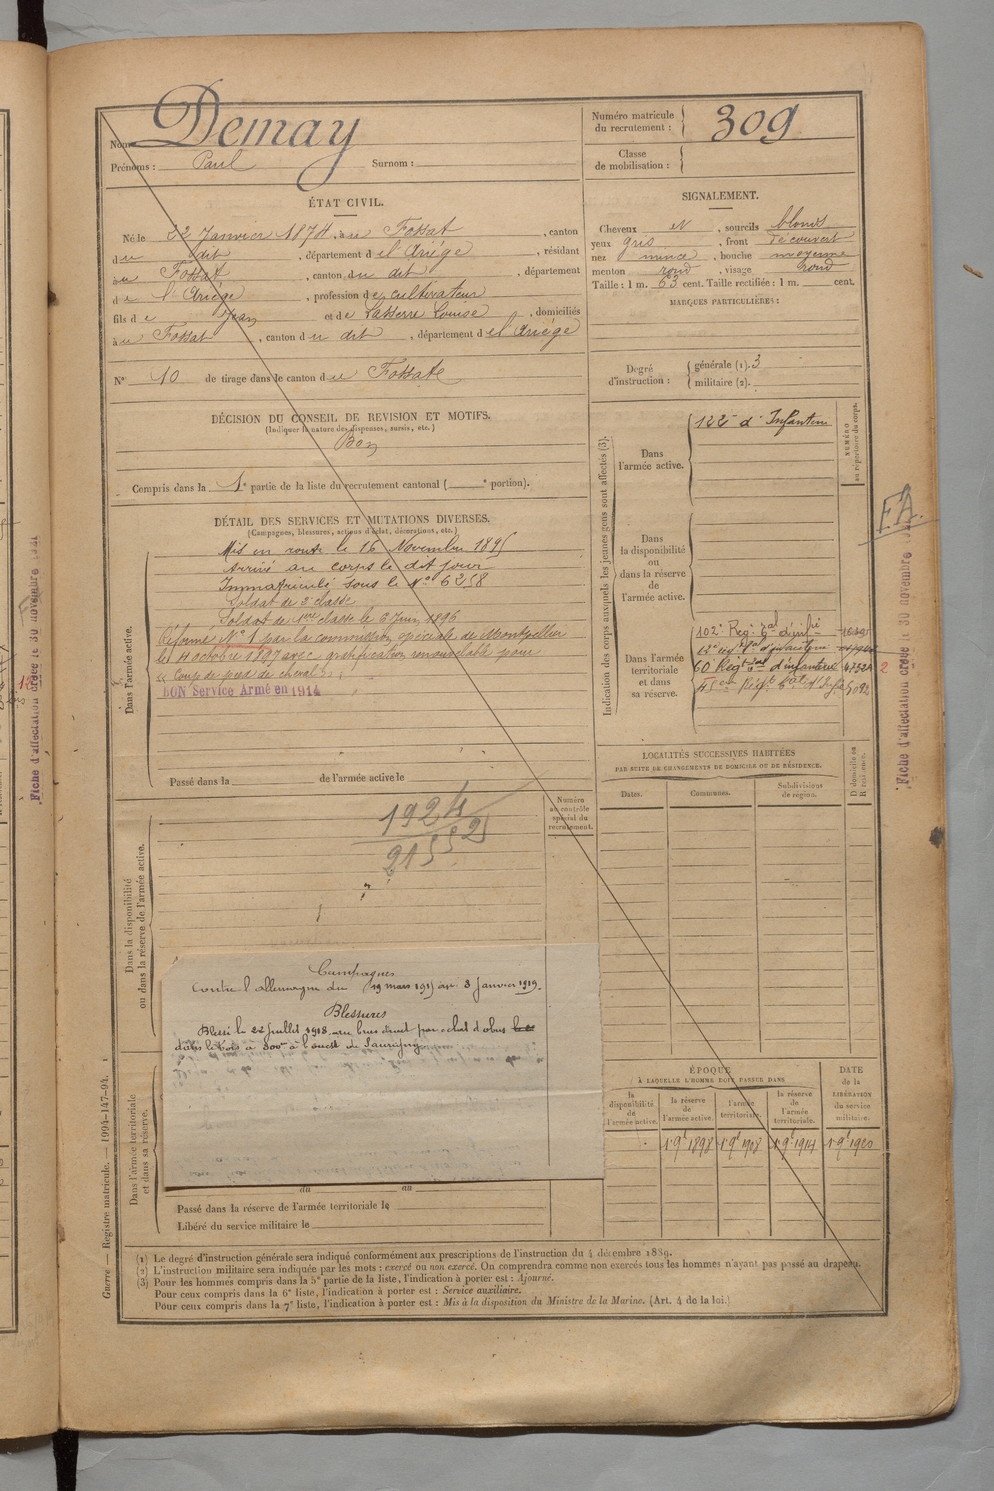 Nom Demay
Prénoms : Paul Surnom :
Numéro matricule du recrutement : 309
Classe de mobilisation :
ÉTAT CIVIL.
Né le 22 Janvier 1874, à au Fossat, canton
du dit, département de l'Ariége, résidant
au Fossat, canton du dit, département
de l'Ariége, profession de cultivateur
fils de Jean et de Lasserre Louise, domiciliés
à au Fossat, canton du dit, département de l'Ariége
N° 10 de tirage dans le canton du Fossat
DÉCISION DU CONSEIL DE REVISION ET MOTIFS.
(Indiquer la nature des dispenses, sursis, etc.)
Bon
Compris dans la 1e partie de la liste du recrutement cantonal ( e portion).
SIGNALEMENT.
Cheveux et, sourcils blonds
yeux gris, front découvert
nez mince, bouche moyenne
menton rond, visage rond
Taille : 1 m. 63 cent. Taille rectifiée : 1 m. cent.
MARQUES PARTICULIÈRES :
Degré d'instruction : générale (1). 3
militaire (2).
DÉTAIL DES SERVICES ET MUTATIONS DIVERSES.
(Campagnes, blessures, actions d'éclat, décorations, etc.)
Dans l'armée active.
Mis en route le 16 Novembre 1895
Arrivé au corps le dit jour
Immatriculé sous le N° 6258
Soldat de 2e classe
Soldat de 1ère classe le 6 Juin 1896
Réformé N° 1 par la commission spéciale de Montpellier
le 11 octobre 1897 avec gratification renouvelable pour
" Coup de pied de cheval "
BON Service Armé en 1914
Passé dans la de l'armée active le
Indication des corps auxquels les jeunes gens sont affectés (3).
NUMÉRO au répertoire du corps.
Dans l'armée active.
122e d'Infanterie
Dans la disponibilité ou dans la réserve de l'armée active.
Dans l'armée territoriale et dans sa réserve.
102e Reg. d'infrie
60 Reg d'infanterie
F.A.
2
Fiche d'affectation créée le 30 novembre
Fiche d'affectation créée le 30 novembre
LOCALITÉS SUCCESSIVES HABITÉES
PAR SUITE DE CHANGEMENTS DE DOMICILE OU DE RÉSIDENCE.
Dates. Communes. Subdivisions de région. D domicile ou R résidence.
Numéro au contrôle spécial du recrutement.
Dans la disponibilité ou dans la réserve de l'armée active.
1924
Campagnes
Contre l'allemagne du 19 mars 1915 au 3 Janvier 1919.
Blessures
Blessé le 22 Juillet 1918 au bras droit par éclat d'obus
dans le bois à 300m à l'ouest de
Dans l'armée territoriale et dans sa réserve.
du au
Passé dans la réserve de l'armée territoriale le
Libéré du service militaire le
ÉPOQUE
À LAQUELLE L'HOMME DOIT PASSER DANS
la disponibilité de l'armée active.
la réserve de l'armée active.
l'armée territoriale.
la réserve de l'armée territoriale.
DATE de la LIBÉRATION du service militaire.
1 9e 1898 1 9e 1908 1 9e 1914 1 9e 1920
Guerre — Registre matricule. — 1994-147-94.
(1) Le degré d'instruction générale sera indiqué conformément aux prescriptions de l'instruction du 4 décembre 1889.
(2) L'instruction militaire sera indiquée par les mots : exercé ou non exercé. On comprendra comme non exercés tous les hommes n'ayant pas passé au drapeau.
(3) Pour les hommes compris dans la 5e partie de la liste, l'indication à porter est : Ajourné.
Pour ceux compris dans la 6e liste, l'indication à porter est : Service auxiliaire.
Pour ceux compris dans la 7e liste, l'indication à porter est : Mis à la disposition du Ministre de la Marine. (Art. 4 de la loi.)